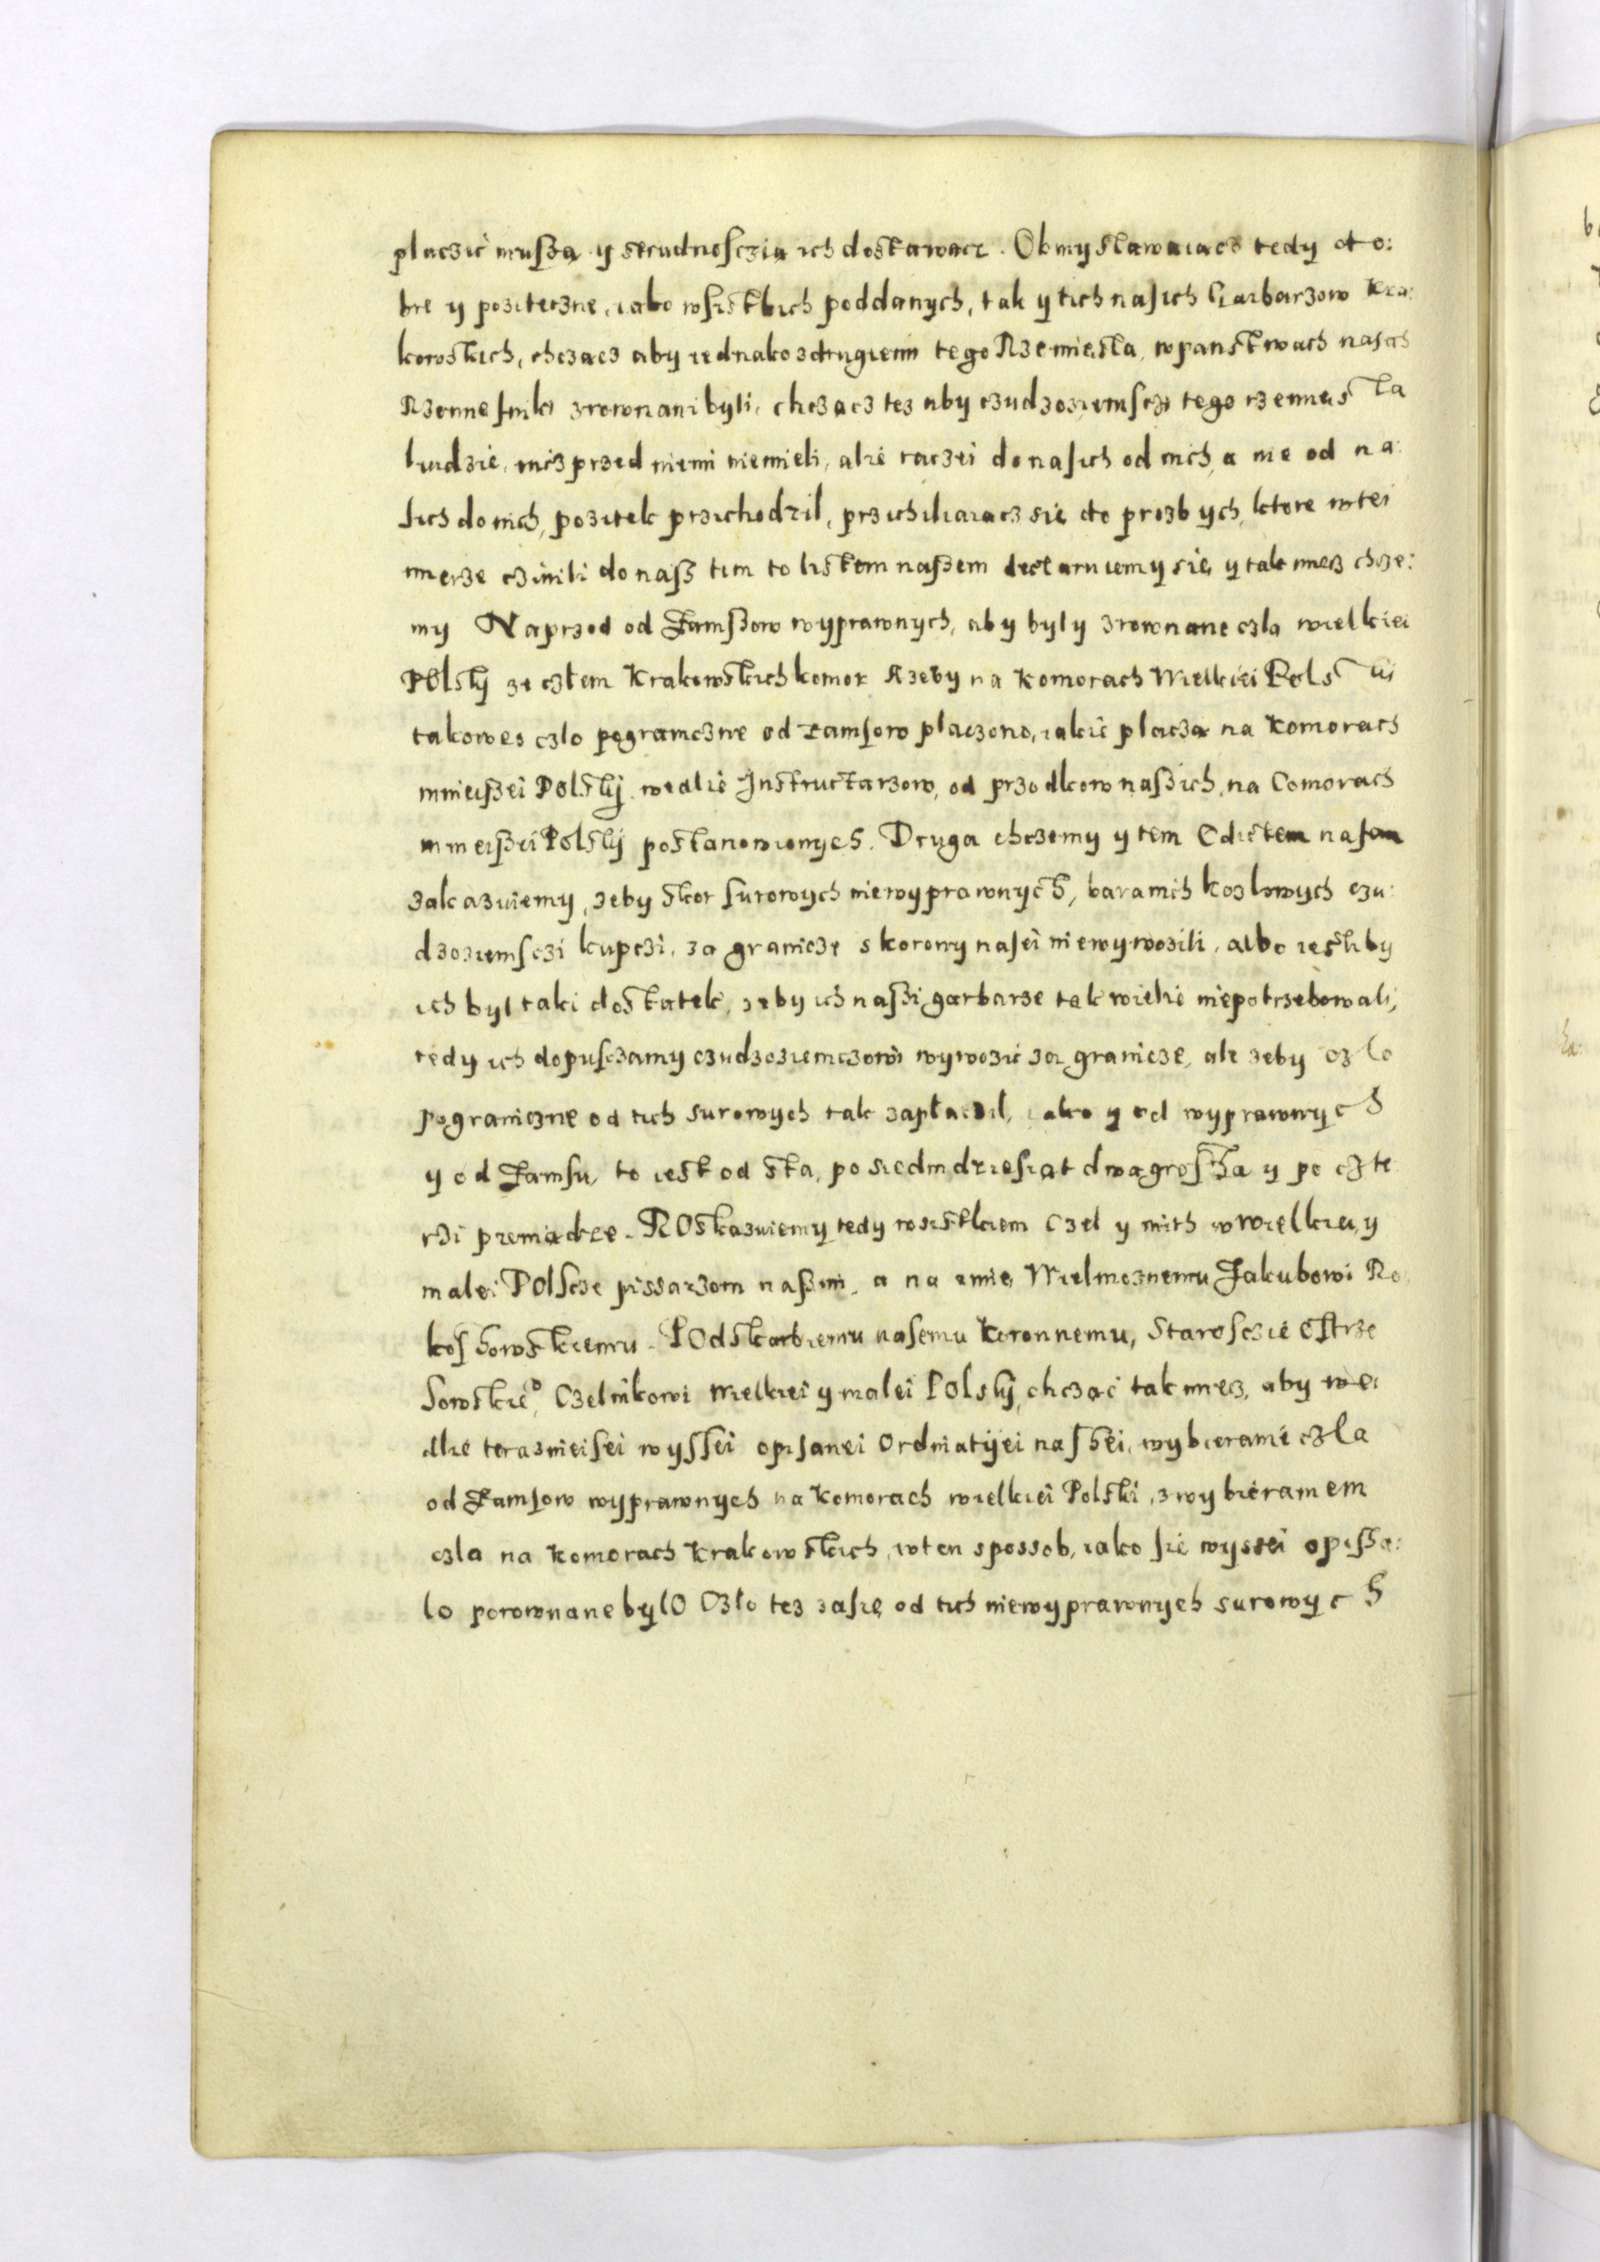 placzić muszą y strudnosczią ich dostawacz. Obmyslawaiacz tedy do:
bre y poziteczne, iako wsistkich poddanych, tak y tich nasich Garbarzow Kra:
kowskich, chczacz aby iednako zdrugiemi tego Rzemiesła, wpanstwach nasich
Rzemiesniki zrownani byli, chczacz tez aby czudzoziemsczi tego rzemiesła
ludzie, nicz przed niemi niemieli, alie raczei do nasich od nich, a nie od na:
sich do nich, pozitek przichodzil, przichiliaiacz sie do prozb ych, ktore wtei
mierze czinili do nasz tim to listem naszem declaruiemy sie, y tak miecz chcze:
my Naprzod od Zamszow wyprawnych, aby były zrownane czla wielkiei
Polskij ze człem Krakowskich komor Azeby na Komorach Wielkiei Polskij
takowes czlo pogranczne od zamsow placzono, iakie placza na Komorach
mnieiszei Polskij wedlie Instructarzow, od przodkow naszich, na Comorach
mnieiszei Polskij postanowionych. Druga chczemy y tem Edictem nasem
zakazuiemy, zeby skor surowych niewyprawnych, baranich kozlowych czu:
dzoziemsczi kupczi, za granicze s korony nasei niewywozili, albo iesliby
ich był taki dostatek, zeby ich naszi garbarze tak wielie niepotrzebowali,
tedy ich dopusczamy czudzoziemczowi wywozić za granicze, ale zeby czlo
pograniczne od tich surowych tak zapłaczil, iako y od wyprawnych
y od Zamsu, to iest od sta, po siedmdziesiat dwa grosza y po czte
rzi pieniadze. Roskazuiemy tedy wsistkiem Czel y mith w Wielkiei, y
malei Polscze pissarzom naszim, a na imie, Wielmoznemu Jakubowi Ro
kossowskiemu. Podskarbiemu nasemu Koronnemu, Starosczie Ostrze
sowskie°, Czelnikowi Wielkiei y malei Polskij, chczac tak miecz, aby we:
dlie terazniejsei wyssei opisanei Ordinatijei naszei, wybieranie czla
od Zamsow wyprawnych na Komorach wielkiei Polski, zwybieraniem
czla na Komorach Krakowskich, wten spossob, iako sie wyssei opissa:
lo porownane bylo Czło tez zasie od tich niewyprawnych surowych